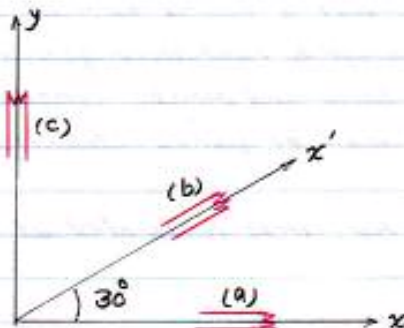 y
(c)
x'
(b)
30°
(a)
x